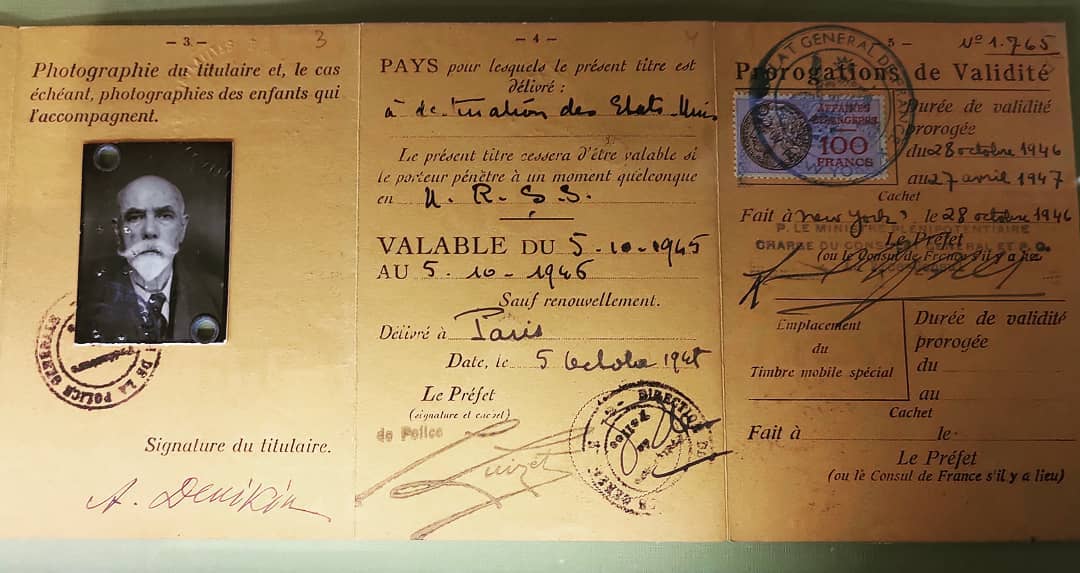 — 3 —
3
Photographie du titulaire et, le cas
échéant, photographies des enfants qui
l'accompagnent.
DE LA POLICE GENERALE
Signature du titulaire.
A. Denikin
— 4 —
4
PAYS pour lesquels le présent titre est
délivré :
à destination des Etats-Unis
Le présent titre cessera d'être valable si
le porteur pénètre à un moment quelconque
en U. R. S. S.
VALABLE DU 5-10-1945
AU 5-10-1946
Sauf renouvellement.
Délivré à Paris
Date, le 5 Octobre 1945
Le Préfet
(signature et cachet)
de Police
DIRECTION
5 —
N° 1.765
Prorogations de Validité
GENERAL DE FRANCE
NEW YORK
AFFAIRES
ETRANGERES
100
FRANCS
Durée de validité
prorogée
du 28 octobre 1946
au 27 avril 1947
Cachet
Fait à New York le 28 octobre 1946
P. LE MINISTRE PLÉNIPOTENTIAIRE
CHARGÉ DU CONSULAT GENERAL ET P. O.
Le Préfet
(ou le Consul de France s'il y a lieu)
Emplacement
du
Timbre mobile spécial
Durée de validité
prorogée
du
au
Cachet
Fait à le
Le Préfet
(ou le Consul de France s'il y a lieu)